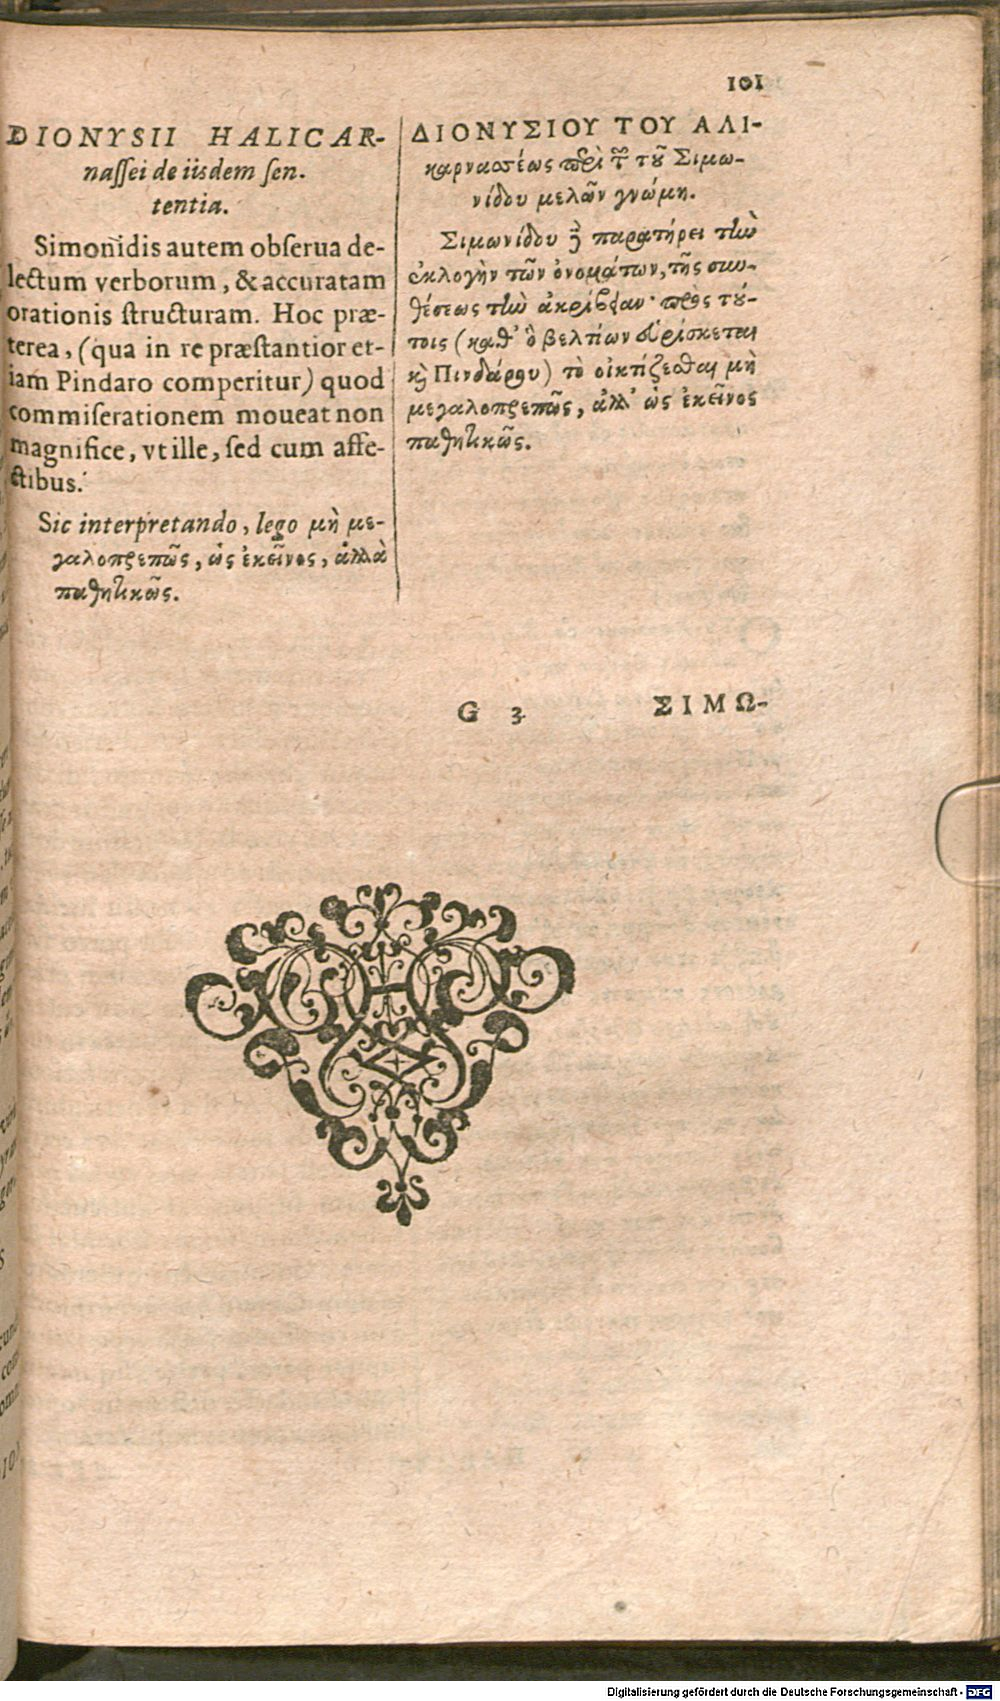 101
DIONYSII HALICAR-
nassei de iisdem sen-
tentia.
Simonidis autem obserua de-
lectum verborum, & accuratam
orationis structuram. Hoc præ-
terea, (qua in re præstantior et-
iam Pindaro comperitur) quod
commiserationem moueat non
magnifice, vt ille, sed cum affe-
ctibus.
Sic interpretando, lego μὴ με-
γαλοπρεπῶς, ὡς ἐκεῖνος, ἀλλὰ
παθητικῶς.
ΔΙΟΝΥΣΙΟΥ ΤΟΥ ΑΛΙ-
καρνασέως περὶ τῶν τοῦ Σιμω-
νίδου μελῶν γνώμη.
Σιμωνίδου δὲ παρατήρει τὴν
ἐκλογὴν τῶν ὀνομάτων, τῆς συν-
θέσεως τὴν ἀκρίβειαν· πρὸς τού-
τοις (καθ' ὃ βελτίων εὑρίσκεται
καὶ Πινδάρου) τὸ οἰκτίζεσθαι μὴ
μεγαλοπρεπῶς, ἀλλ' ὡς ἐκεῖνος
παθητικῶς.
G 3 ΣΙΜΩ-
Digitalisierung gefördert durch die Deutsche Forschungsgemeinschaft - DFG